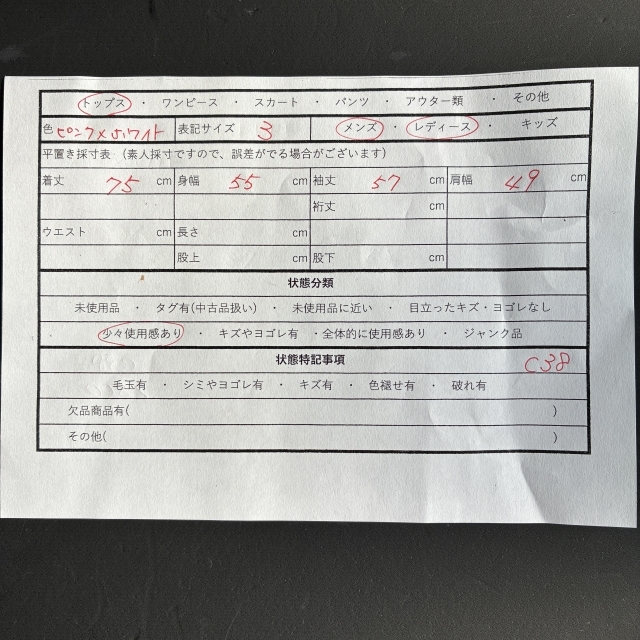 トップス ・ ワンピース ・ スカート ・ パンツ ・ アウター類 ・ その他
色 ピンク×ホワイト 表記サイズ 3 メンズ ・ レディース ・ キッズ
平置き採寸表 (素人採寸ですので、誤差がでる場合がございます)
着丈 75 cm 身幅 55 cm 袖丈 57 cm 肩幅 49 cm
裄丈 cm
ウエスト cm 長さ cm
股上 cm 股下 cm
状態分類
未使用品 ・ タグ有(中古品扱い) ・ 未使用品に近い ・ 目立ったキズ・ヨゴレなし
少々使用感あり ・ キズやヨゴレ有 ・全体的に使用感あり ・ ジャンク品
状態特記事項 C38
毛玉有 ・ シミやヨゴレ有 ・ キズ有 ・ 色褪せ有 ・ 破れ有
欠品商品有( )
その他( )